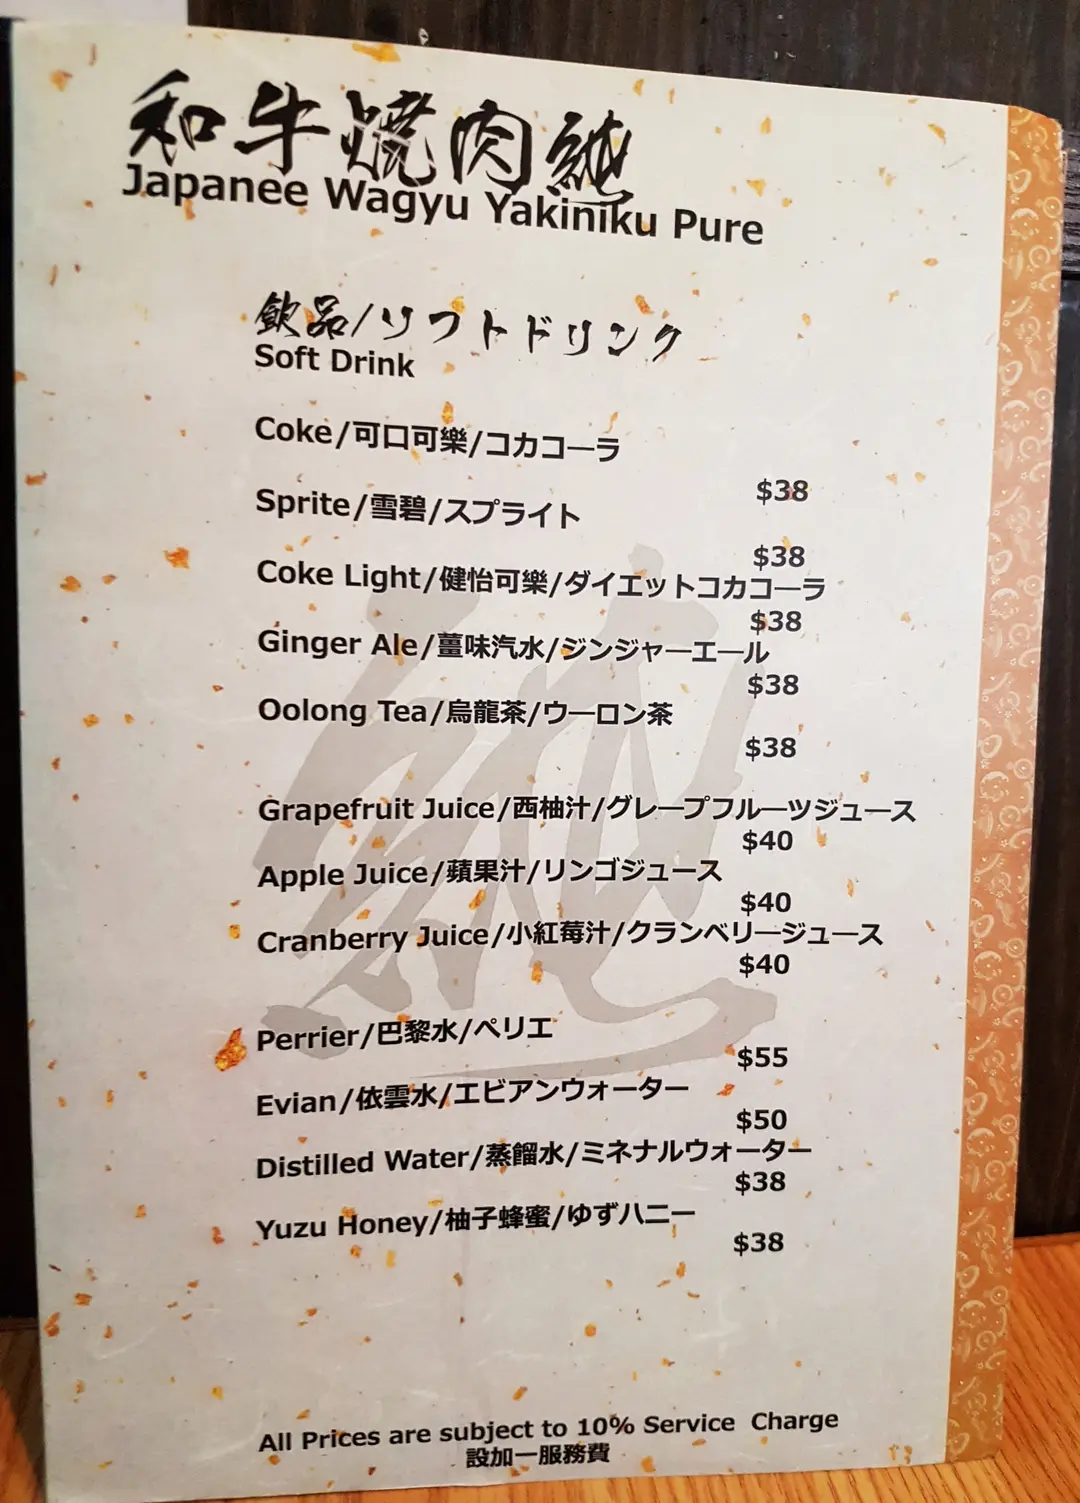 和牛焼肉純
Japanee Wagyu Yakiniku Pure
飲品/ソフトドリンク
Soft Drink
Coke/可口可樂/コカコーラ
$38
Sprite/雪碧/スプライト
$38
Coke Light/健怡可樂/ダイエットコカコーラ
$38
Ginger Ale/薑味汽水/ジンジャーエール
$38
Oolong Tea/烏龍茶/ウーロン茶
$38
Grapefruit Juice/西柚汁/グレープフルーツジュース
$40
Apple Juice/蘋果汁/リンゴジュース
$40
Cranberry Juice/小紅莓汁/クランベリージュース
$40
Perrier/巴黎水/ペリエ
$55
Evian/依雲水/エビアンウォーター
$50
Distilled Water/蒸餾水/ミネナルウォーター
$38
Yuzu Honey/柚子蜂蜜/ゆずハニー
$38
All Prices are subject to 10% Service Charge
設加一服務費